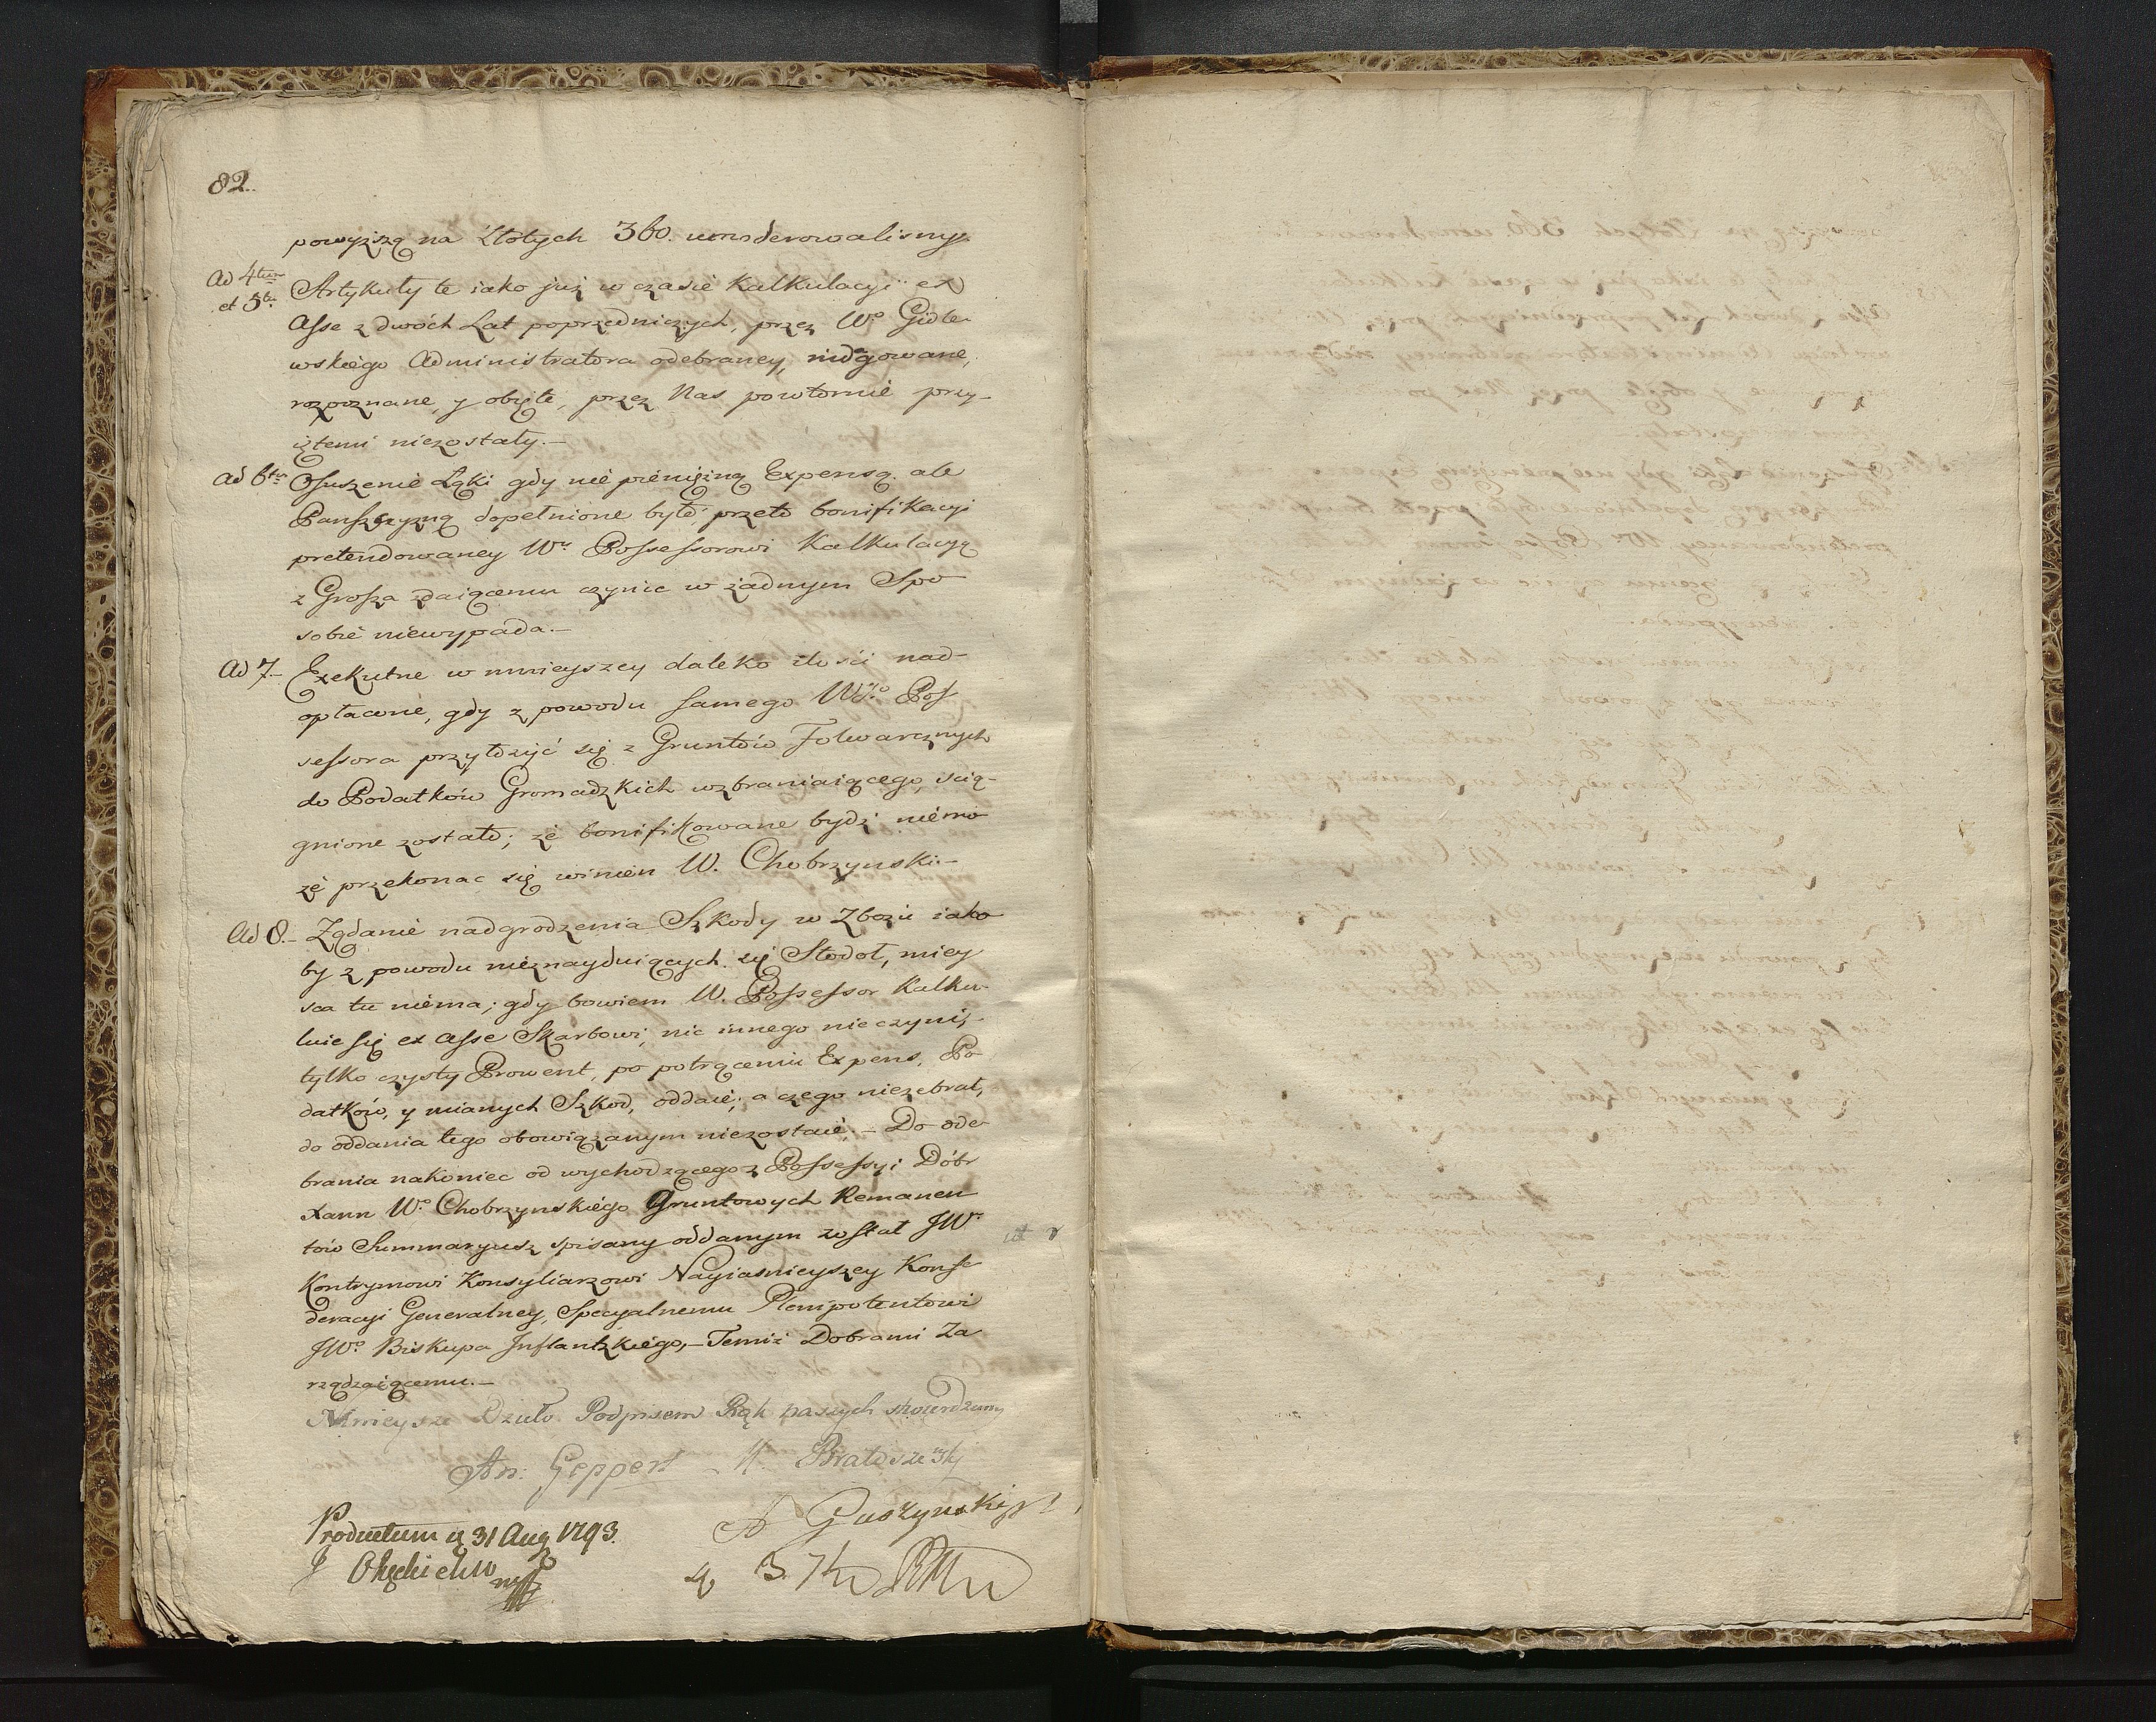 82.
powyższą na Złotych 360. umoderowalismy.
Ad 4tum et 5tum Artykuły te iako już w czasie Kalkulacyi ex
Asse z dwóch Lat poprzedniczych, przez Wo Gidle-
wskiego Administratora odebraney,
rozpoznane, y obięte, przez Nas powtornie przy-
iętemi niezostały.–
Ad 6tum Osuszenie Łąki gdy nie pieniężną Expensą ale
Panszczyzną dopełnione było, przeto bonifikacyi
pretendowaney Wu Possessorowi Kalkulacyą
z Grosza zdaiącemu czynic w żadnym Spo
sobie niewypada.–
Ad 7.– Exekutne w mnieyszey daleko ilości nad-
opłacone, gdy z powodu samego Wgo Pos
sessora przyłożyć się z Gruntów Folwarcznych
do Podatków Gromadzkich wzbraniaiącego, scią-
gnione zostało; że bonifikowane bydź niemo
że przekonac się winien W. Chobrzynski.–
Ad 8.– Żądanie nadgrodzenia Szkody w Zbożu iako
by z powodu nieznayduiących się Stodoł, miey
sca tu niema; gdy bowiem W. Possessor Kalku-
luie się ex Asse Skarbowi, nic innego nie czyni,
tylko czysty Prowent, po potrąceniu Expens, Po
datków, y mianych Szkod, oddaie; a czego niezebrał,
do oddania tego obowiązanym niezostaie.– Do ode
brania nakoniec od wychodzącego z Possessyi Dóbr
Xann Wo Chobrzynskiego Gruntowych Remanen
tów Summaryusz spisany oddanym został JWu
Kontrymowi Konsyliarzowi Nayiasnieyszey Konfe
deracyi Generalney, Specyalnemu Plenipotentowi
JWo Biskupa Inflantzkiego,– Temiż Dobrami Za
rządzaiącemu.–
Ninieysze Dzieło Podpisem Rąk naszych stwierdzamy
An: Geppert
Productum d. 31 Aug 1793.
A Guszynski